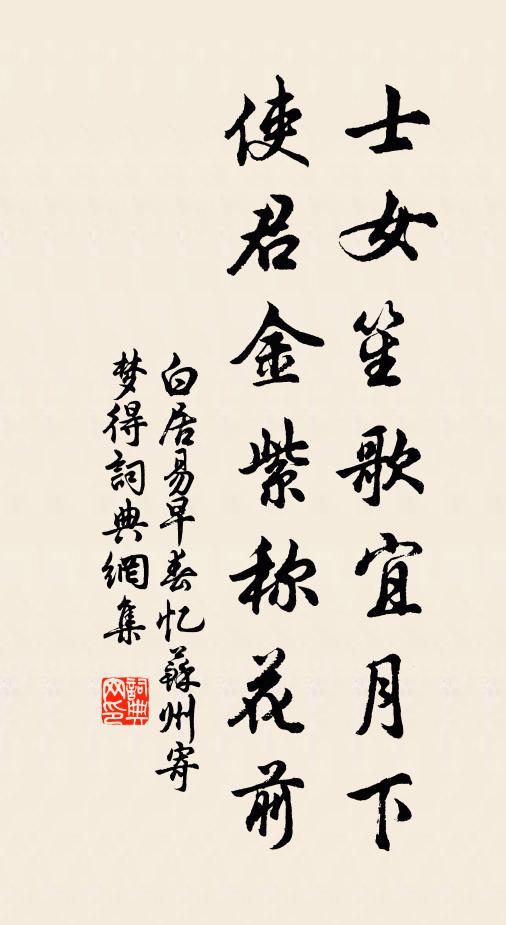 士女笙歌宜月下
使君金紫称花前
白居易早春忆蘇州寄
梦得詞典網集
詞典网印